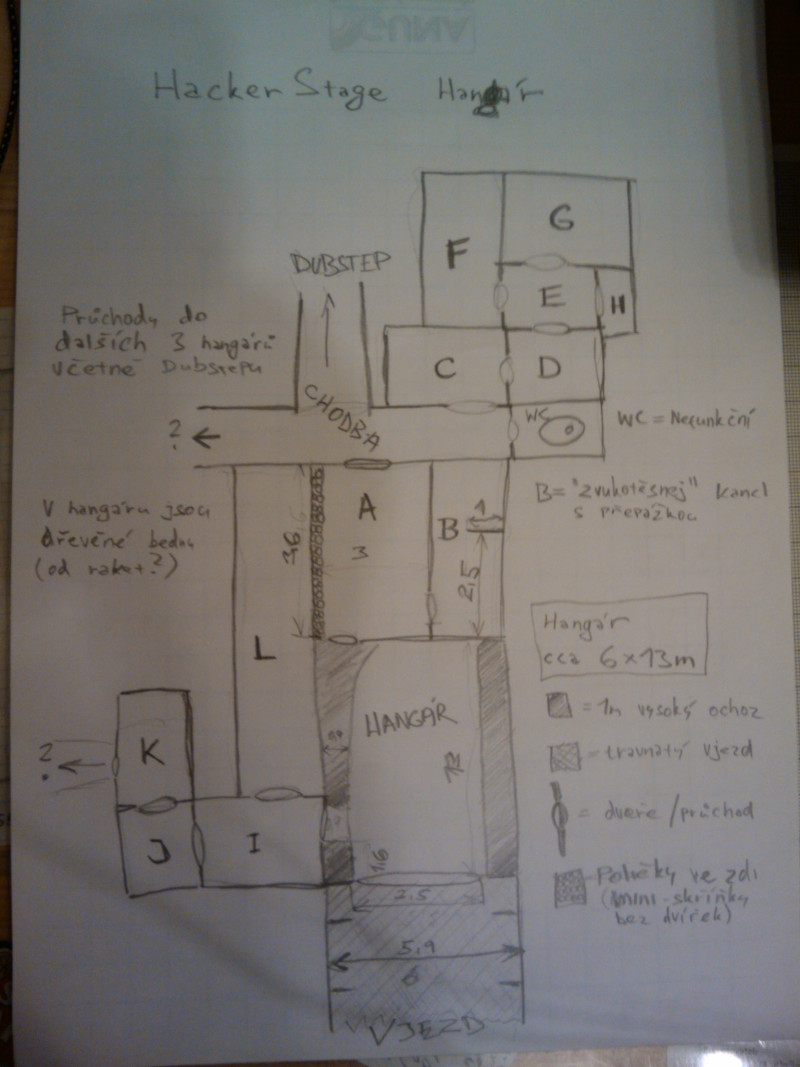 Hacker Stage Hangár
G
F
DUBSTEP
E
H
Průchody do
dalších 3 hangárů
včetně Dubstepu
C
D
CHODBA
WC
WC = Nefunkční
?
A
B = "zvukotěsnej" kancl
s přepážkou
V hangáru jsou
dřevěné bedny
(od raket?)
3,6
3
B
1
2,5
Hangár
cca 6x13m
L
HANGÁR
= 1m vysoký ochoz
?
K
= travnatý vjezd
= dveře/průchod
J
I
1,6
= Poličky ve zdi
(mini-skříňky
bez dvířek)
5,9
6
VJEZD